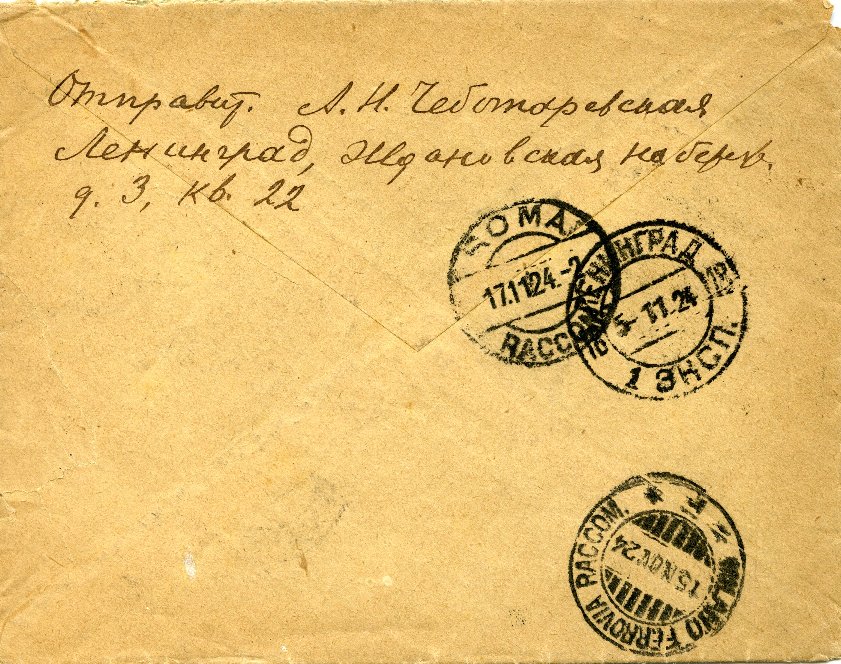 Отправит. А. Н. Чеботаревская
Ленинград, Ждановская набереж.
д. 3, кв. 22
ROMA
17.11.24.-2
RACCOM
ЛЕНИНГРАД
5-11.24
1 ЭКСП.
MILANO FERROVIA RACCOM. * F *
15 NOV 24